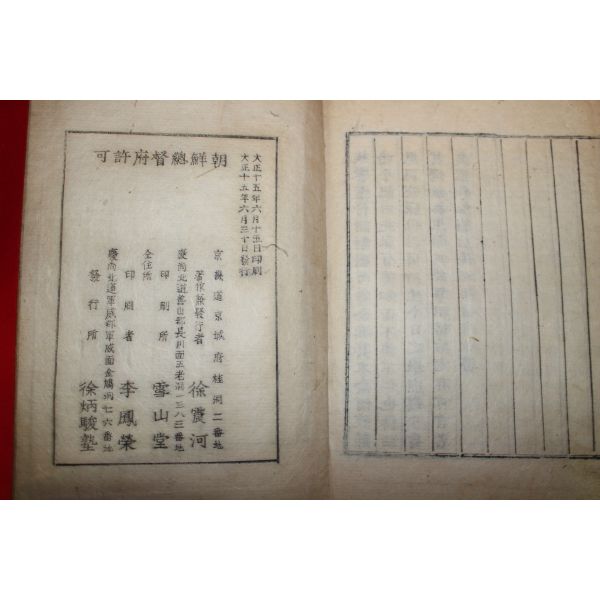 朝鮮總督府許可
大正十五年六月十五日印刷
大正十五年六月三十日發行
京畿道京城府桂洞二番地
著作兼發行者 徐震河
慶尚北道善山郡長川面五老洞一三八三番地
印刷所 雪山堂
仝住所
印刷者 李鳳榮
慶尚北道軍威郡軍威面金鳩洞七六番地
發行所 徐炳駿塾